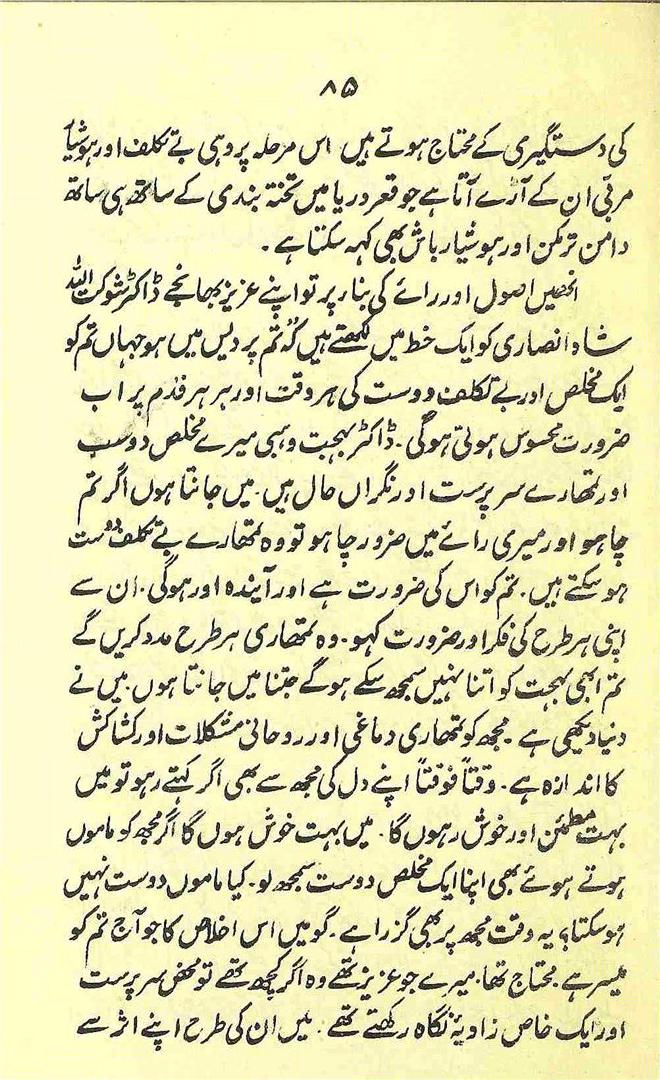 ۸۵
کی دستگیری کے محتاج ہوتے ہیں اس مرحلہ پر وہی بے تکلف اور ہوشیار
مربی ان کے آڑے آتا ہے جو قعر دریا میں تختہ بندی کے ساتھ ہی ساتھ
دامن ترکمن اور ہوشیار باش بھی کہہ سکتا ہے ۔
انھیں اصول اور رائے کی بنا پر تو اپنے عزیز بھانجے ڈاکٹر شوکت اللہ
شاہ انصاری کو ایک خط میں لکھتے ہیں کہ "تم پردیس میں ہو جہاں تم کو
ایک مخلص اور بے تکلف دوست کی ہر وقت اور ہر ہر قدم پر اب
ضرورت محسوس ہوتی ہوگی ۔ ڈاکٹر بہجت وہبی میرے مخلص دوست
اور تمھارے سرپرست اور نگراں حال ہیں ۔ میں جانتا ہوں اگر تم
چاہو اور میری رائے میں ضرور چاہو تو وہ تمھارے بے تکلف دوست
ہو سکتے ہیں ۔ تم کو اس کی ضرورت ہے اور آیندہ اور ہوگی ۔ ان سے
اپنی ہر طرح کی فکر اور ضرورت کہو ۔ وہ تمھاری ہر طرح مدد کریں گے
تم ابھی بہجت کو اتنا نہیں سمجھ سکے ہوگے جتنا میں جانتا ہوں ۔ میں نے
دنیا دیکھی ہے ۔ مجھ کو تمھاری دماغی اور روحانی مشکلات اور کشاکش
کا اندازہ ہے ۔ وقتاً فوقتاً اپنے دل کی مجھ سے بھی اگر کہتے رہو تو میں
بہت مطمئن اور خوش رہوں گا ۔ میں بہت خوش ہوں گا اگر مجھ کو ماموں
ہوتے ہوئے بھی اپنا ایک مخلص دوست سمجھ لو ۔ کیا ماموں دوست نہیں
ہو سکتا؟ یہ وقت مجھ پر بھی گزرا ہے ۔ گو میں اس اخلاص کا جو آج تم کو
میسر ہے ۔ محتاج تھا ۔ میرے جو عزیز تھے وہ اگر کچھ تھے تو محض سرپرست
اور ایک خاص زاویۂ نگاہ رکھتے تھے ۔ میں ان کی طرح اپنے اثر سے